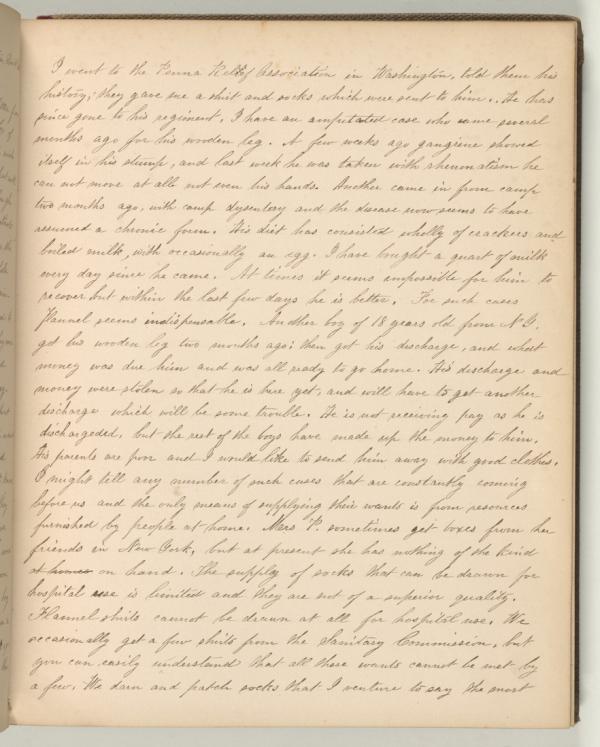 I went to the Penna Relief Association in Washington, told them his
history; they gave me a shirt and socks which were sent to him.. He has
since gone to his regiment. I have an amputated case who came several
months ago for his wooden leg. A few weeks ago gangrene showed
itself in his stump, and last week he was taken with rheumatism he
can not move at all not even his hands. Another came in from camp
two months ago, with camp dysentery and the disease now seems to have
assumed a chronic form. His diet has consisted wholly of crackers and
boiled milk, with occasionally an egg. I have bought a quart of milk
every day since he came. At times it seems impossible for him to
recover but within the last few days he is better. For such cases
Flannel seems indispensable. Another boy of 18 years old from N.Y.
got his wooden leg two months ago; then got his discharge, and what
money was due him and was all ready to go home. His discharge and
money were stolen so that he is here yet, and will have to get another
discharge which will be some trouble. He is not receiving pay as he is
dischargeded, but the rest of the boys have made up the money to him.
His parents are poor and I would like to send him away with good clothes.
I might tell any number of such cases that are constantly coming
before us and the only means of supplying their wants is from resources
furnished by people at home. Mrs P. sometimes get boxes from her
friends in New York, but at present she has nothing of the kind
at home on hand. The supply of socks that can be drawn for
hospital use is limited and they are not of a superior quality.
Flannel shirts cannot be drawn at all for hospital use. We
occasionally get a few shirts from the Sanitary Commission, but
you can easily understand that all these wants cannot be met by
a few. We darn and patch socks that I venture to say the most